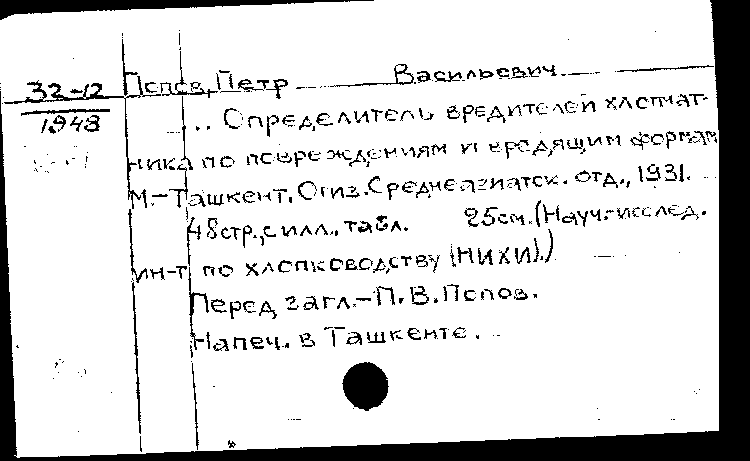 32-12 Попов, Петр Васильевич
1948 ... Определитель вредителей хлопчат-
ника по повреждениям и вредящим формам
М.-Ташкент. Огиз. Среднеазиатск. отд., 1931.
48стр., с илл., табл. 25см. (Науч.-исслед.
ин-т по хлопководству (НИХИ).)
Перед загл.-П.В.Попов.
Напеч. в Ташкенте.